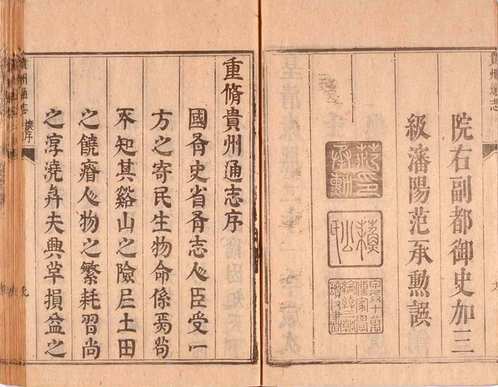 貴州通志
院右副都御史加三
級瀋陽范承勲譔
重脩貴州通志序
國有史省有志人臣受一
方之寄民生物命係焉茍
不知其谿山之險戹土田
之饒瘠人物之繁耗習尚
之淳澆與夫興革損益之
貴州通志 序